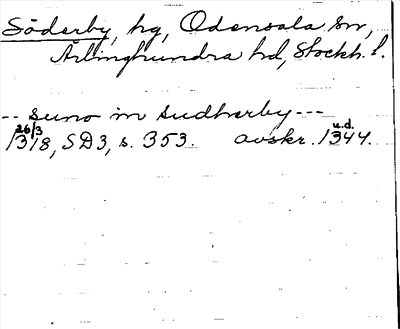 Söderby, hg, Odensala sn,
Ärlinghundra hd, Stockh. l.
-- suno in sudherby ---
26/3 1318, SD3, s. 353. avskr. u.d. 1344.